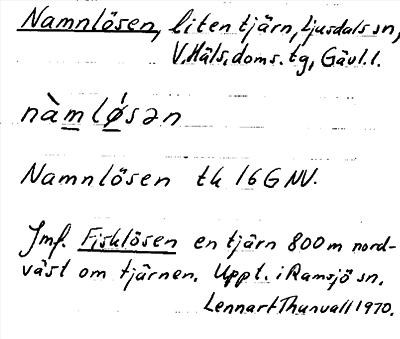 Namnlösen, liten tjärn, Ljusdals sn,
V. Häls. doms. tg, Gävl. l.
nàmlǿsən
Namnlösen tk 16G NV.
Jmf. Fisklösen en tjärn 800 m nord-
väst om tjärnen. Uppt. i Ramsjö sn.
Lennart Thunvall 1970.